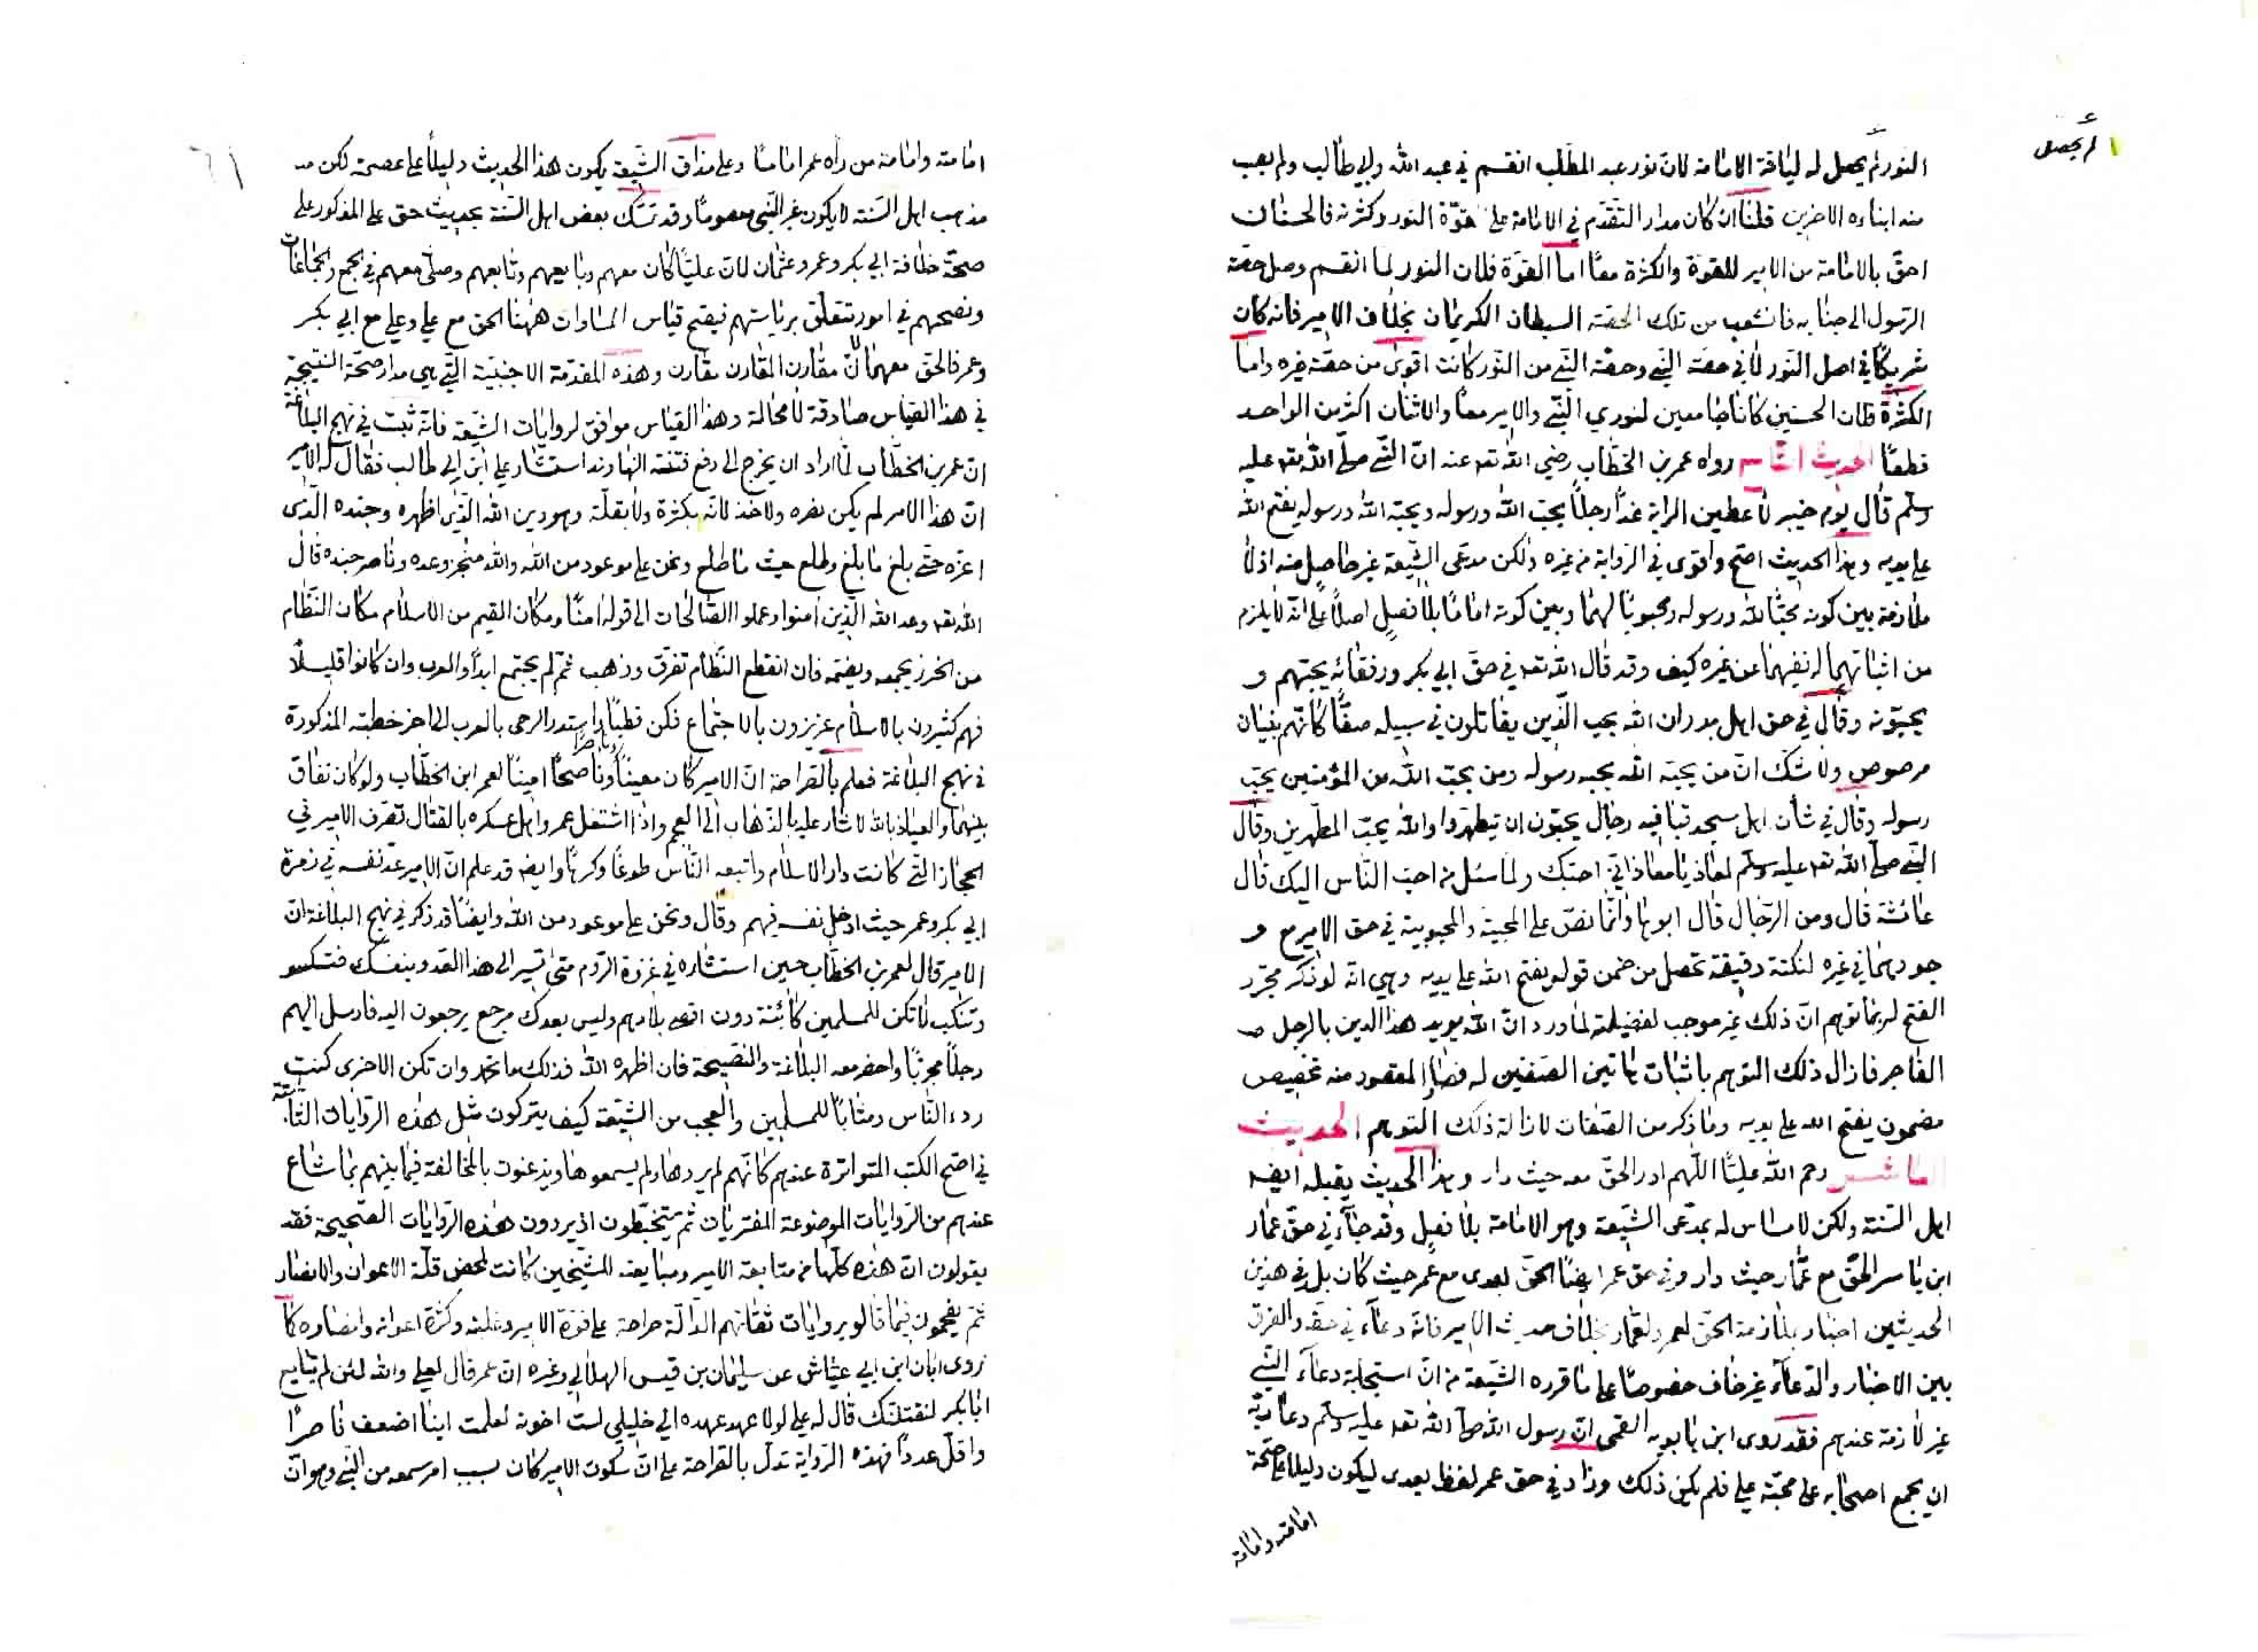 لم يحصل
النور لم يحصل له لياقة الامامة لان نور عبد المطلب انقسم في عبد الله وابي طالب ولم يصب
منه ابناءه الاخرين قلنا ان كان مدار التقدم في الامامة على قوة النور وكثرته فالحسنان
احق بالامامة من الامير للقوة والكثرة معًا اما القوة فلان النور لما انقسم وصل حصة
الرسول الى جنابه فانشعب من تلك الحصة السبطان الكريمان بخلاف الامير فانه كان
شريكًا في اصل النور لا في حصة النبي وحصة النبي من النور كانت اقوى من حصة غيره واما
الكثرة فلان الحسنين كانا جامعين لنوري النبي والامير معًا والاثنان اكثر من الواحد
قطعًا الحديث التاسع رواه عمر بن الخطاب رضي الله تعه عنه ان النبي صلى الله تعه عليه
وسلم قال يوم خيبر لاعطين الراية غدًا رجلًا يحب الله ورسوله ويحبه الله ورسوله يفتح الله
على يديه وهذا الحديث اصح واقوى في الرواية من غيره ولكن مدعى الشيعة غير حاصل منه اذ لا
ملازمة بين كونه محبًا لله ورسوله ومحبوبًا لهما وبين كونه امامًا بلا فصل اصلًا على انه لا يلزم
من اثباتهما له نفيهما عن غيره كيف وقد قال الله تعه في حق ابي بكر ورفقائه يحبهم و
يحبونه وقال في حق اهل بدر ان الله يحب الذين يقاتلون في سبيله صفًا كانهم بنيان
مرصوص ولا شك ان من يحبه الله يحبه رسوله ومن يحب الله من المؤمنين يحب
رسوله وقال في شأن اهل مسجد قبا فيه رجال يحبون ان يتطهروا والله يحب المطهرين وقال
النبي صلى الله تعه عليه وسلم لمعاذ يا معاذ اني احبك ولما سئل من احب الناس اليك قال
عائشة قال ومن الرجال قال ابوها وانما نص على المحبية والمحبوبية في حق الامير مع و
جودهما في غيره لنكتة دقيقة تحصل من ضمن قوله يفتح الله على يديه وهي انه لو ذكر مجرد
الفتح لربما توهم ان ذلك غير موجب لفضيلته لما ورد ان الله يويد هذا الدين بالرجل
الفاجر فازال ذلك التوهم باثبات هاتين الصفتين له فصار المقصود منه تخصيص
مضمون يفتح الله على يديه وما ذكر من الصفات لازالة ذلك التوهم الحديث
العاشر رحم الله عليًا اللهم ادر الحق معه حيث دار وهذا الحديث يقبله ايضه
اهل السنة ولكن لا مساس له بمدعى الشيعة وهو الامامة بلا فصل وقد جاء في حق عمار
ابن ياسر الحق مع عمار حيث دار وفي حق عمر ايضًا الحق بعدى مع عمر حيث كان بل في هذين
الحديثين اخبار بملازمة الحق لعمر ولعمار بخلاف حديث الامير فانه دعاء في حقه والفرق
بين الاخبار والدعاء غير خاف خصوصًا على ما قرره الشيعة من ان استجابة دعاء النبي
غير لازمة عندهم فقد روى ابن بابويه القمى ان رسول الله صلى الله تعه عليه وسلم دعا ربه
ان يجمع اصحابه على محبة علي فلم يكن ذلك وزاد في حق عمر لفظ بعدى ليكون دليلا على صحة
امامته وامامة
٦١
امامته وامامة من راه عمر امامًا وعلى مذاق الشيعة يكون هذا الحديث دليلًا على عصمته لكن
مذهب اهل السنة لا يكون غير النبي معصومًا وقد تمسك بعض اهل السنة بحديث حق على المذكور على
صحة خلافة ابي بكر وعمر وعثمان لان عليًا كان معهم وبايعهم وتابعهم وصلى معهم في الجمع والجماعات
ونصحهم في امور تتعلق برياستهم فيفتح قياس المساوات ههنا الحق مع علي وعلي مع ابي بكر
وعمر فالحق معهما لان مقارن المقارن مقارن وهذه المقدمة الاجنبية التي هي مدار صحة النتيجة
في هذا القياس صادقة لا محالة وهذا القياس موافق لروايات الشيعة فانه ثبت في نهج البلاغة
ان عمر بن الخطاب لما اراد ان يخرج الى دفع فتنة النهاوند استشار علي ابن ابي طالب فقال له الامير
ان هذا الامر لم يكن نصره ولا خذلانه بكثرة ولا بقلة وهو دين الله الذي اظهره وجنده الذى
اعزه حتى بلغ ما بلغ وطلع حيث ما طلع ونحن على موعود من الله والله منجز وعده وناصر جنده قال
الله تعه وعد الله الذين امنوا وعملوا الصالحات الى قوله امنًا ومكان القيم من الاسلام مكان النظام
من الخرز يجمعه ويضمه فان انقطع النظام تفرق وذهب ثم لم يجتمع ابدًا والعرب وان كانوا قليلًا
فهم كثيرون بالاسلام عزيزون بالاجتماع فكن قطبًا واستدر الرحى بالعرب الى اخر خطبته المذكورة
في نهج البلاغة فعلم بالصراحة ان الامير كان معينًا وناصرًا وناصحًا امينًا لعمر ابن الخطاب ولو كان نفاق
بينهما والعياذ بالله لاشار عليه بالذهاب الى العجم واذا اشتغل عمر واهل عسكره بالقتال تصرف الامير في
الحجاز التي كانت دار الاسلام واتبعه الناس طوعًا وكرهًا وايضه قد علم ان الامير عد نفسه في زمرة
ابي بكر وعمر حيث ادخل نفسه فيهم وقال ونحن على موعود من الله وايضًا قد ذكر في نهج البلاغة ان
الامير قال لعمر بن الخطاب حين استشاره في غزوة الروم متى تسير الى هذا العدو بنفسك فتكسر
وتنكب لا تكن للمسلمين كائنة دون اقصى بلادهم وليس بعدك مرجع يرجعون اليه فارسل اليهم
رجلًا مجربًا واحضر معه البلاغة والنصيحة فان اظهره الله فذلك ما تحب وان تكن الاخرى كنت
ردء الناس ومثابًا للمسلمين والعجب من الشيعة كيف يتركون مثل هذه الروايات الثابتة
في اصح الكتب المتواترة عندهم كانهم لم يروها ولم يسمعوها ويذعنون بالمخالفة فيما بينهم بما شاع
عندهم من الروايات الموضوعة المفتريات ثم يتخبطون اذ يرون هذه الروايات الصحيحة فقد
يقولون ان هذه كلها من متابعة الامير ومبايعته للشيخين كانت لمحض قلة الاعوان والانصار
ثم يفحمون فيما قالو بروايات ثقاتهم الدالة صراحة على قوة الامير وغلبته وكثرة اعوانه وانصاره كما
روى ابان ابن ابي عياش عن سليمان بن قيس الهلالي وغيره ان عمر قال لعلي والله لئن لم تبايع
ابا بكر لنقتلنك قال له علي لولا عهد عهده الي خليلي لست اخونه لعلمت اينا اضعف ناصرًا
واقل عددًا فهذه الرواية تدل بالصراحة على ان سكوت الامير كان بسبب امر سمعه من النبي وهو ان